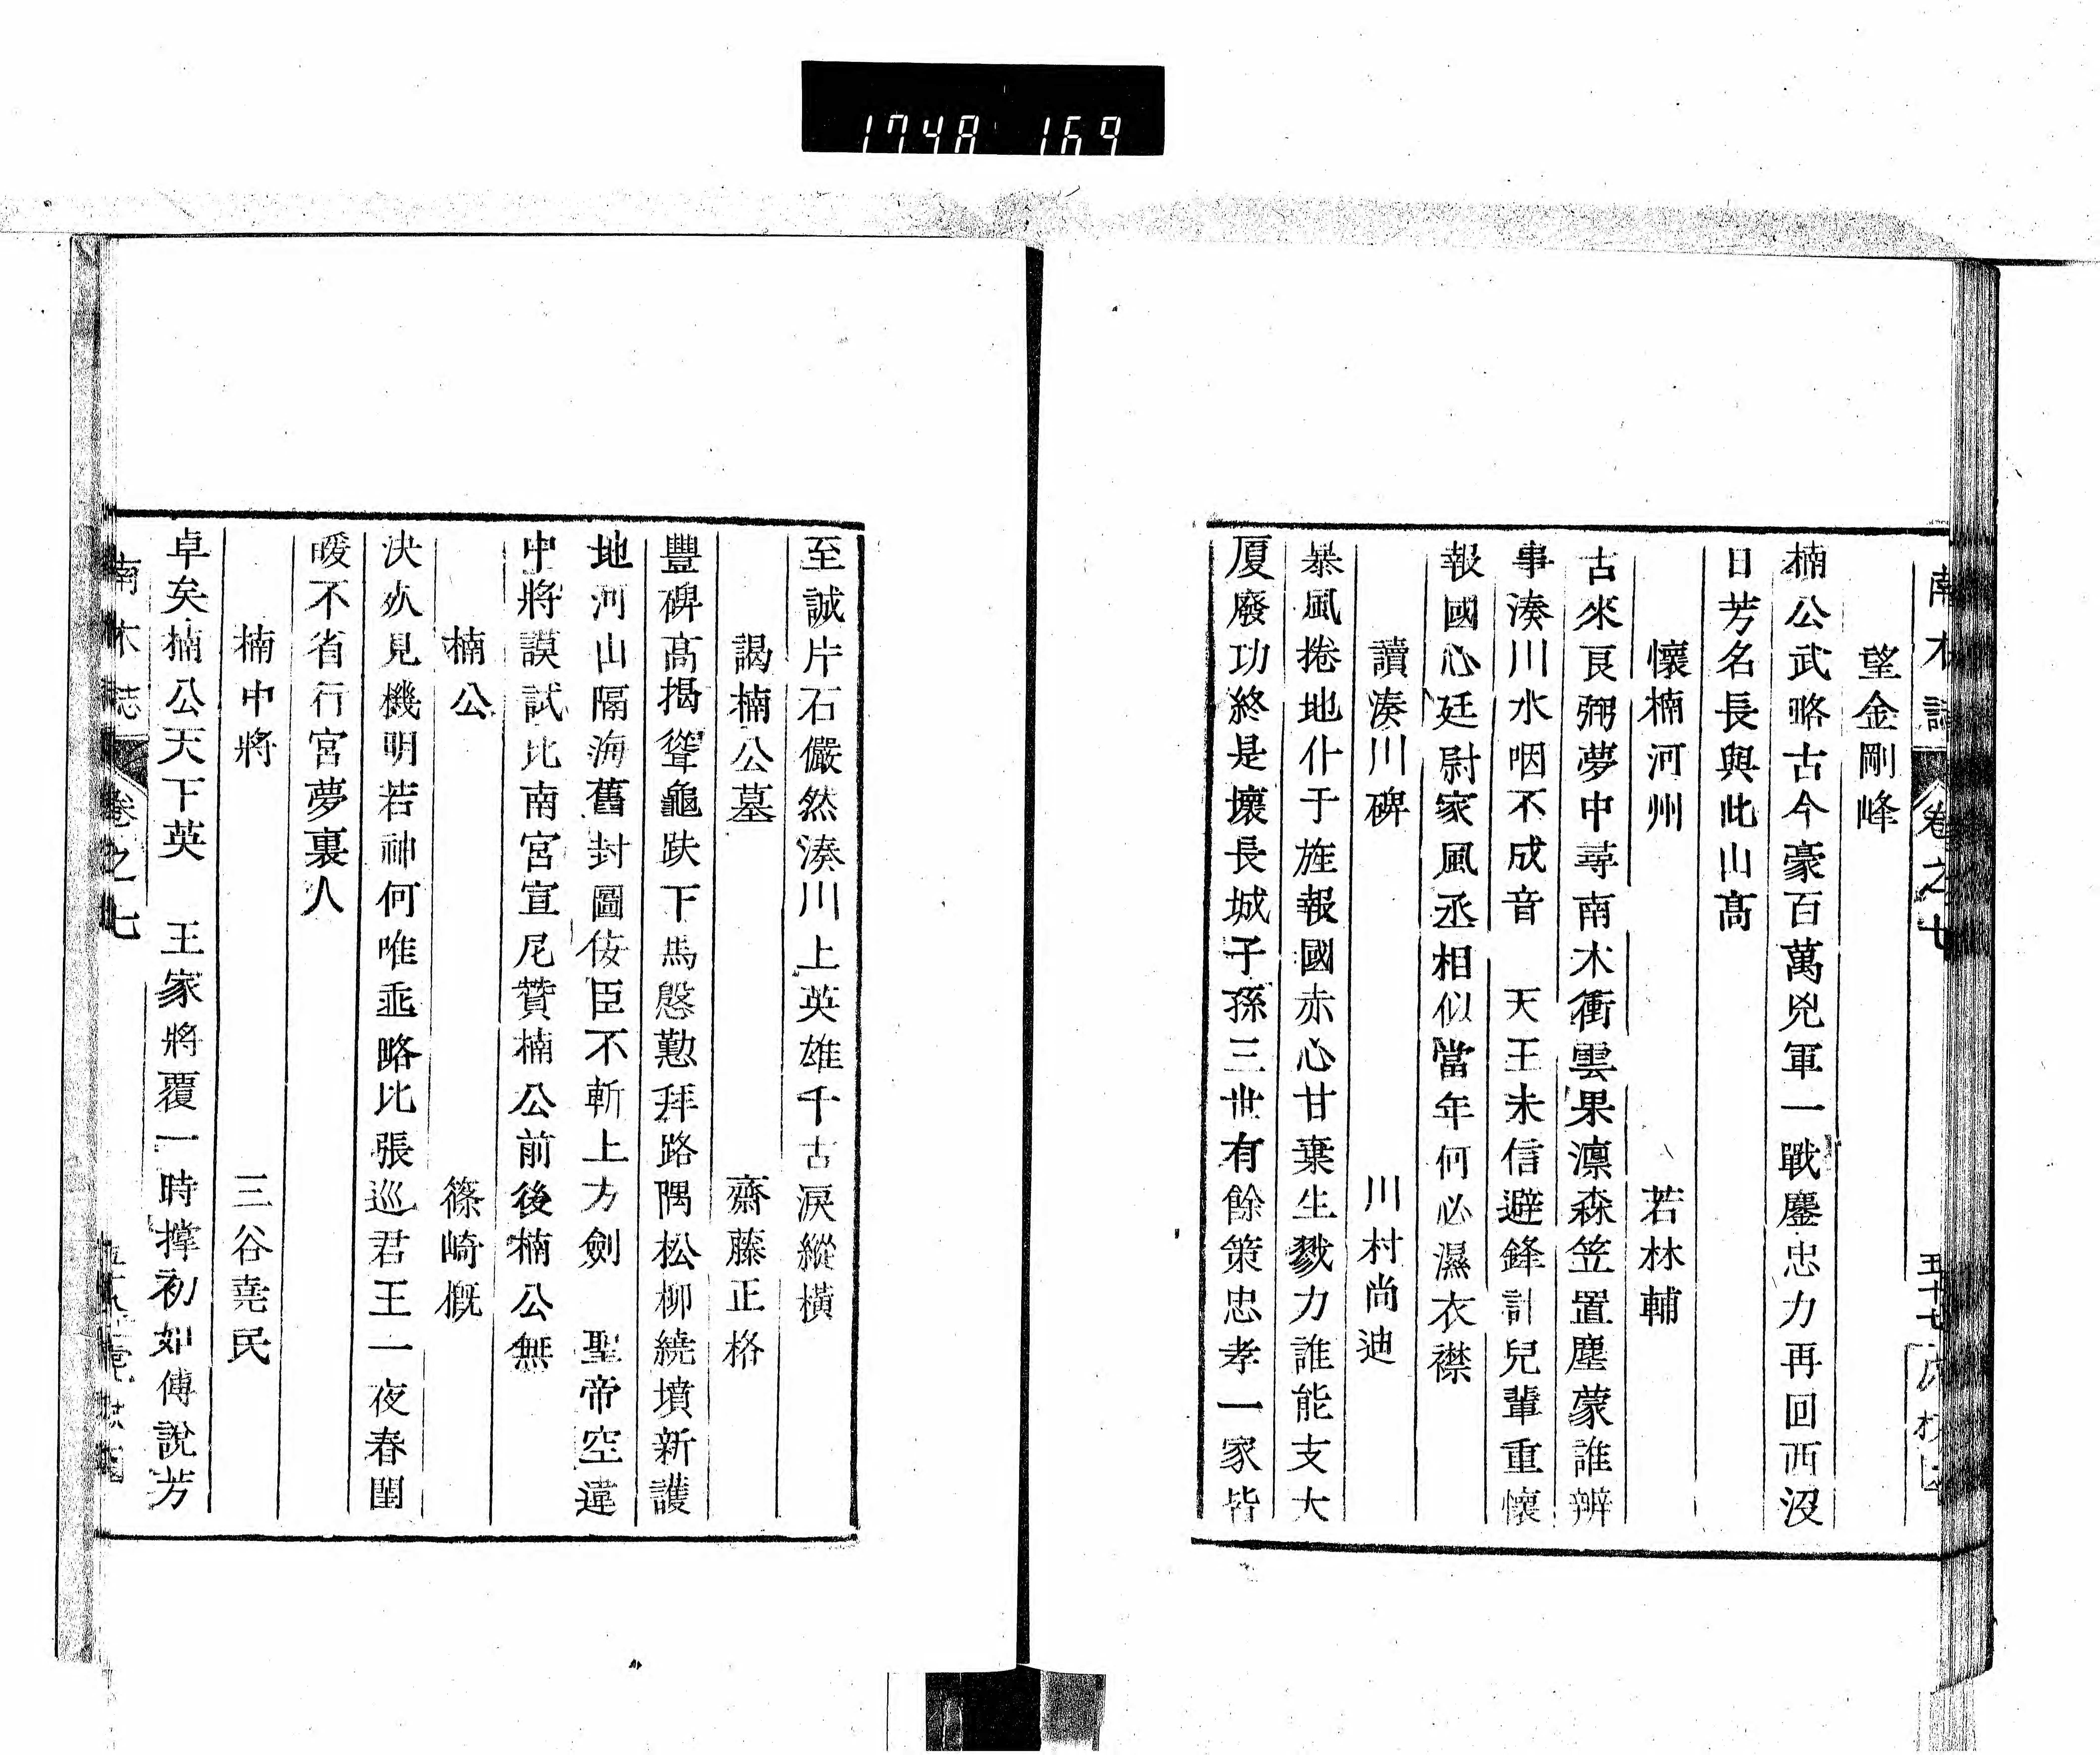 1748 169
南木誌 卷之七 五十七
望金剛峰
楠公武略古今豪百萬兇軍一戰鏖忠力再回西沒
日芳名長與此山高
懷楠河州 若林輔
古來良弼夢中尋南木衝雲果凛森笠置塵蒙誰辨
事湊川水咽不成音 天王未信避鋒計兒輩重懷
報國心廷尉家風丞相似當年何必濕衣襟
讀湊川碑 川村尚迪
暴風捲地仆于旌報國赤心甘棄生戮力誰能支大
厦廢功終是壞長城子孫三世有餘策忠孝一家皆
至誠片石儼然湊川上英雄千古淚縱橫
謁楠公墓 齋藤正格
豐碑高揭聳龜趺下馬慇懃拜路隅松柳繞墳新護
地河山隔海舊封圖佞臣不斬上方劍 聖帝空違
中將謨試比南宮宣尼贊楠公前後楠公無
楠公 篠崎概
決水見機明若神何唯垂略比張巡君王一夜春閨
暖不省行宮夢裏人
楠中將 三谷堯民
卓矣楠公天下英 王家將覆一時撑初如傅說芳
南木誌 卷之七